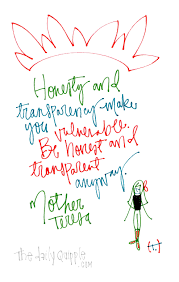 Honesty and
transparency make
you vulnerable.
Be honest and
transparent
anyway.
Mother
Teresa
the daily Quipple
.com